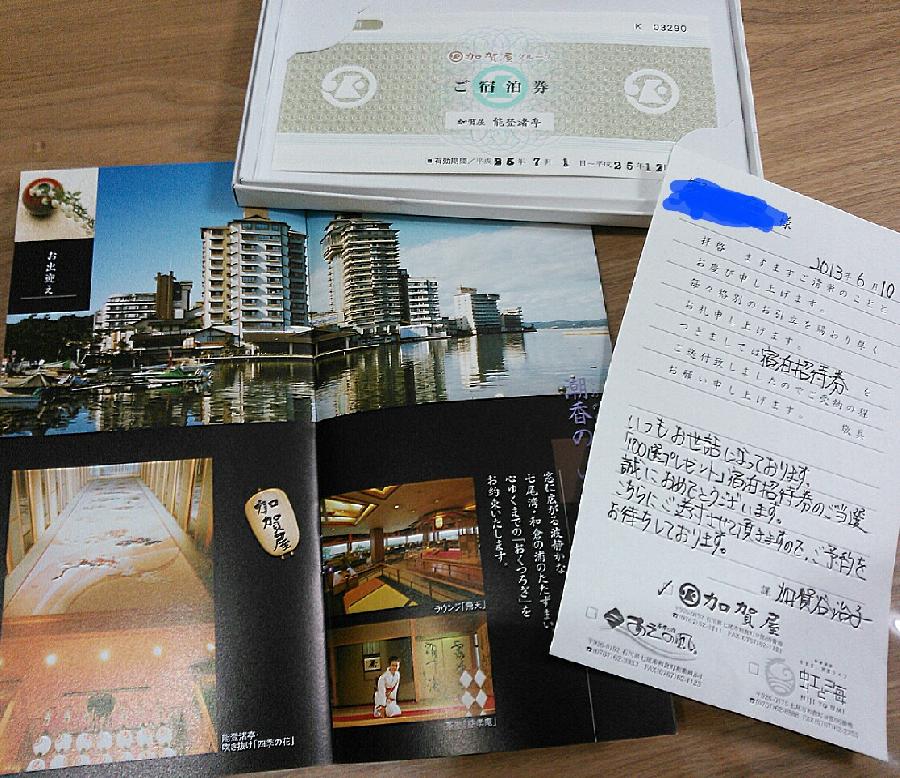 K 03290
加賀屋グループ
ご宿泊券
加賀屋 能登渚亭
■有効期間/平成25年7月1日〜平成25年12
お出迎え
朝香の
窓に広がる波静かな
七尾湾・和倉の浦のたたずまい
心ゆくまでの「おくつろぎ」を
お約束いたします。
加賀屋
ラウンジ「飛天」
能登渚亭
吹き抜け「四季の花」
様
2013年6月10
拝啓 ますますご清栄のことと
お慶び申し上げます。
毎々格別のお引立を賜わり厚く
お礼申し上げます。
つきましては宿泊招待券を
ご送付致しましたのでご受納の程
お願い申し上げます。
敬具
いつもお世話になっております。
「100選プレゼント」宿泊招待券のご当選
誠におめでとうございます。
こちらにご送付させて頂きますので、ご予約を
お待ちしております。
加賀屋
あえの風
虹と海